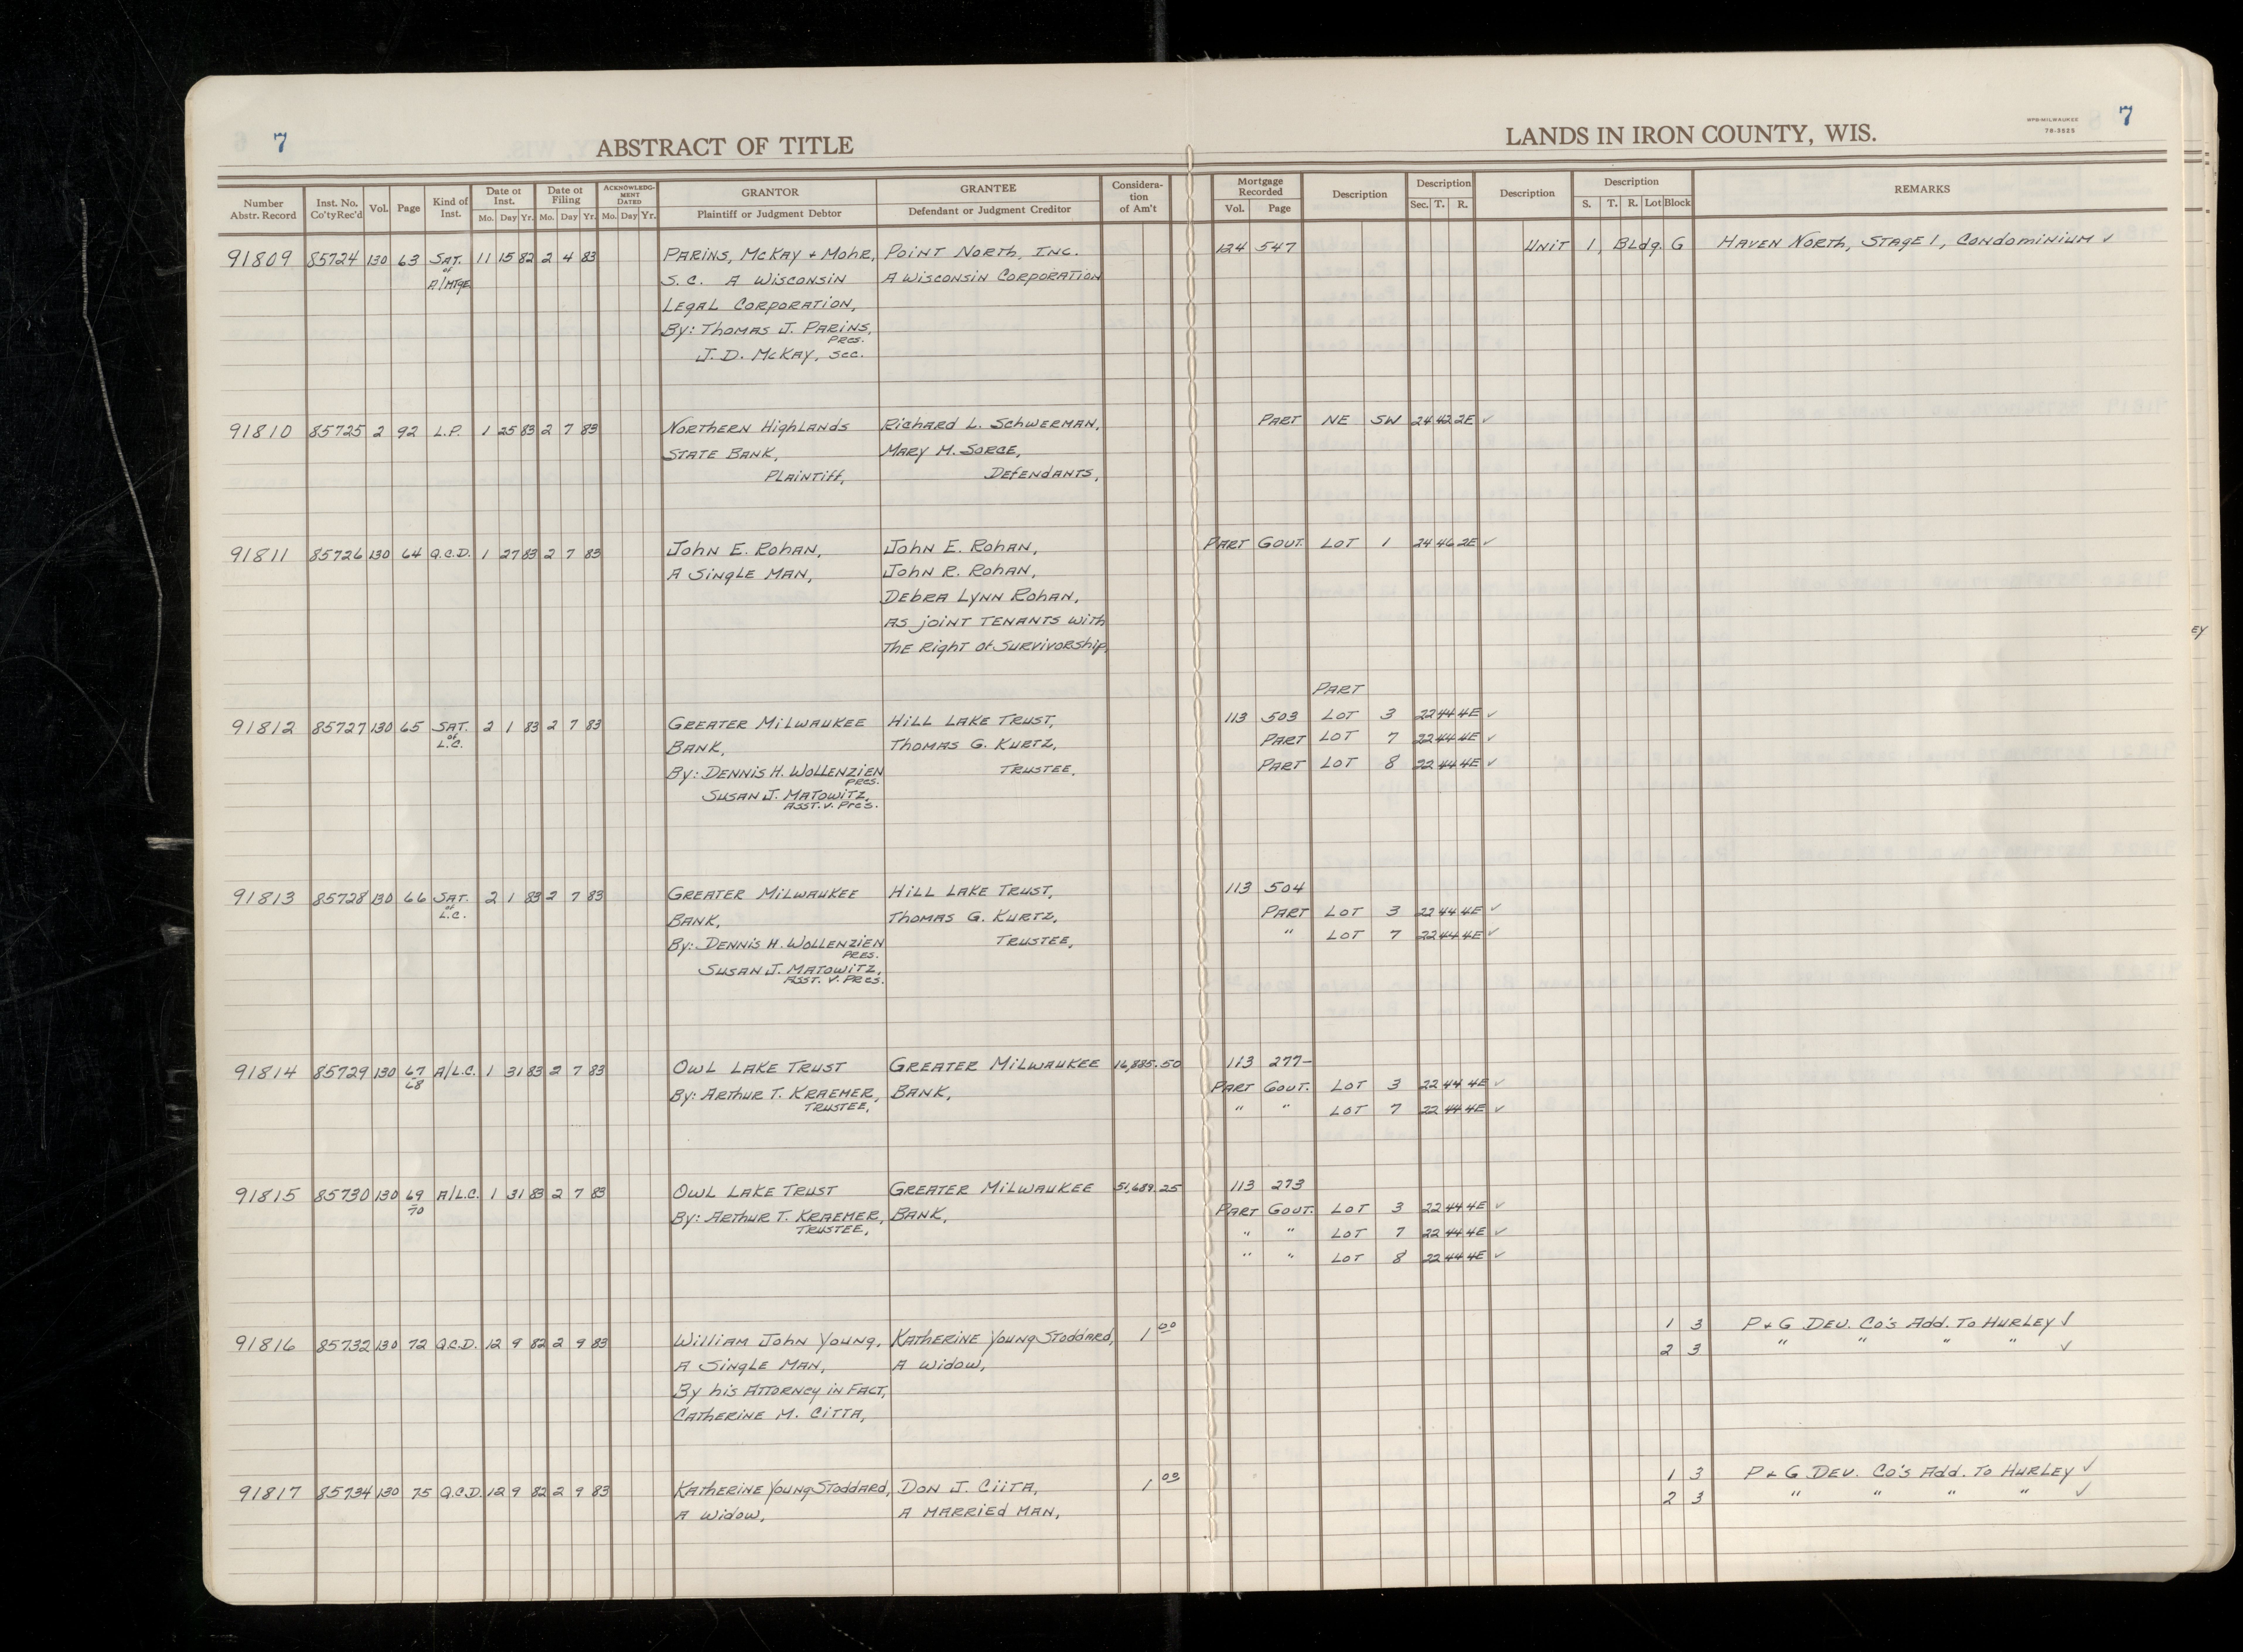 7
7
ABSTRACT OF TITLE
LANDS IN IRON COUNTY, WIS.
WPB-MILWAUKEE
78-3525
Number Abstr. Record | Inst. No. Co'ty Rec'd | Vol. | Page | Kind of Inst. | Date of Inst. Mo. Day Yr. | Date of Filing Mo. Day Yr. | ACKNOWLEDGMENT DATED Mo. Day Yr. | GRANTOR Plaintiff or Judgment Debtor | GRANTEE Defendant or Judgment Creditor | Consideration of Am't | Mortgage Recorded Vol. Page | Description | Description Sec. T. R. | Description | Description S. T. R. Lot Block | REMARKS
91809 85724 130 63 SAT. 11 15 82 2 4 83 PARINS, McKAY + MOHR, POINT NORTH, INC. 124 547 UNIT 1, Bldg. G HAVEN NORTH, STAGE 1, CONDOMINIUM ✓
of A/MTGE S.C. A WISCONSIN A WISCONSIN CORPORATION
LEGAL CORPORATION,
By: THOMAS J. PARINS,
PRES.
J. D. McKAY, SEC.
91810 85725 2 92 L.P. 1 25 83 2 7 83 NORTHERN HIGHLANDS RICHARD L. SCHWERMAN, PART NE SW 24 42 2E ✓
STATE BANK, MARY M. SORCE,
PLAINTIFF, DEFENDANTS,
91811 85726 130 64 Q.C.D. 1 27 83 2 7 83 JOHN E. ROHAN, JOHN E. ROHAN, PART GOUT. LOT 1 24 46 2E ✓
A SINGLE MAN, JOHN R. ROHAN,
DEBRA LYNN ROHAN,
AS JOINT TENANTS WITH
THE RIGHT OF SURVIVORSHIP,
PART
91812 85727 130 65 SAT. 2 1 83 2 7 83 GREATER MILWAUKEE HILL LAKE TRUST, 113 503 LOT 3 22 44 4E ✓
of L.C. BANK, THOMAS G. KURTZ, PART LOT 7 22 44 4E ✓
By: DENNIS H. WOLLENZIEN TRUSTEE, PART LOT 8 22 44 4E ✓
PRES.
SUSAN J. MATOWITZ,
ASST. V. PRES.
91813 85728 130 66 SAT. 2 1 83 2 7 83 GREATER MILWAUKEE HILL LAKE TRUST, 113 504
of L.C. BANK, THOMAS G. KURTZ, PART LOT 3 22 44 4E ✓
By: DENNIS H. WOLLENZIEN TRUSTEE, " LOT 7 22 44 4E ✓
PRES.
SUSAN J. MATOWITZ,
ASST. V. PRES.
91814 85729 130 67 A/L.C. 1 31 83 2 7 83 OWL LAKE TRUST GREATER MILWAUKEE 16,885.50 113 277-
68 By: ARTHUR T. KRAEMER, BANK, PART GOUT. LOT 3 22 44 4E ✓
TRUSTEE, " " LOT 7 22 44 4E ✓
91815 85730 130 69 A/L.C. 1 31 83 2 7 83 OWL LAKE TRUST GREATER MILWAUKEE 51,689.25 113 273
70 By: ARTHUR T. KRAEMER, BANK, PART GOUT. LOT 3 22 44 4E ✓
TRUSTEE, " " LOT 7 22 44 4E ✓
" " LOT 8 22 44 4E ✓
91816 85732 130 72 Q.C.D. 12 9 82 2 9 83 WILLIAM JOHN YOUNG, KATHERINE YOUNG STODDARD, 1 00 1 3 P + G DEV. CO'S ADD. TO HURLEY ✓
A SINGLE MAN, A WIDOW, 2 3 " " " " ✓
By his ATTORNEY IN FACT,
CATHERINE M. CITTA,
91817 85734 130 75 Q.C.D. 12 9 82 2 9 83 KATHERINE YOUNG STODDARD, DON J. CIITA, 1 00 1 3 P + G DEV. CO'S ADD. TO HURLEY ✓
A WIDOW, A MARRIED MAN, 2 3 " " " " ✓
EY